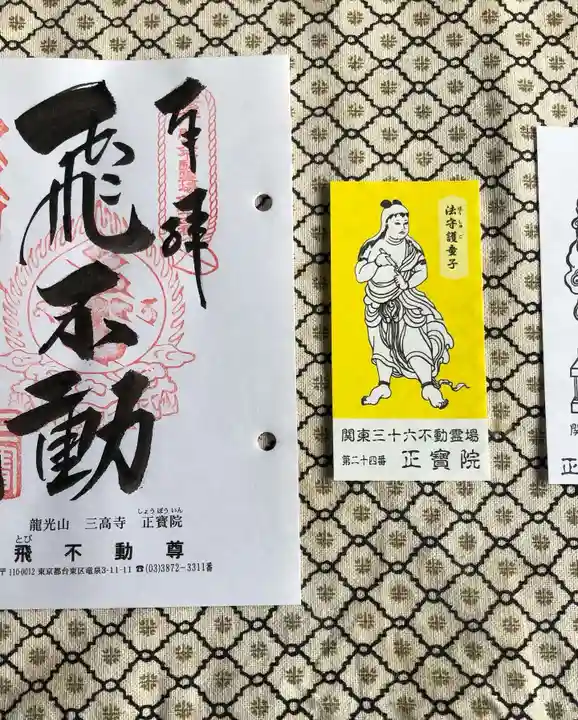 奉拝
飛不動
龍光山 三高寺 正寶院
しょうぼういん
飛不動尊
とび
〒110-0012 東京都台東区竜泉3-11-11 ☎(03)3872-3311番
法守護童子
ほうしゅご
関東三十六不動霊場
第二十四番 正寶院
関
正